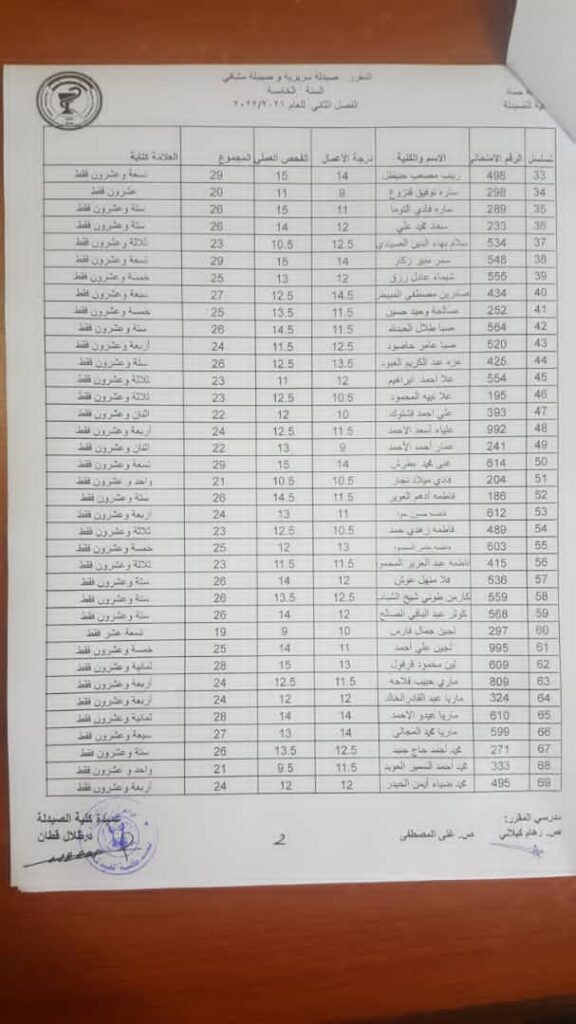 المقرر: صيدلة سريرية و صيدلة مشافي
السنة الخامسة
الفصل الثاني للعام ٢٠٢٢/٢٠٢١
الصيدلة
تسلسل الرقم الامتحاني الاسم والكنية درجة الأعمال الفحص العملي المجموع العلامة كتابة
33 498 زينب مصعب 14 15 29 تسعة وعشرون فقط
34 298 ساره توفيق قنزوع 9 11 20 عشرون فقط
35 289 ساره فادي التوما 11 15 26 ستة وعشرون فقط
36 233 سعاد محمد علي 12 14 26 ستة وعشرون فقط
37 534 سلام بهاء الدين الصيادي 12.5 10.5 23 ثلاثة وعشرون فقط
38 548 سمر منير زكار 14 15 29 تسعة وعشرون فقط
39 555 شيماء عادل رزق 12 13 25 خمسة وعشرون فقط
40 434 مصطفى 14.5 12.5 27 سبعة وعشرون فقط
41 252 صالحة وحيد حسين 11.5 13.5 25 خمسة وعشرون فقط
42 564 صبا طلال العبدالله 11.5 14.5 26 ستة وعشرون فقط
43 520 صبا عامر حاصود 12.5 11.5 24 أربعة وعشرون فقط
44 425 عزه عبد الكريم العبود 13.5 12.5 26 ستة وعشرون فقط
45 554 علا احمد ابراهيم 12 11 23 ثلاثة وعشرون فقط
46 195 علا نبيه المحمود 10.5 12.5 23 ثلاثة وعشرون فقط
47 393 علي احمد قشلوك 10 12 22 اثنان وعشرون فقط
48 992 علياء أسعد الاحمد 11.5 12.5 24 أربعة وعشرون فقط
49 241 عمار أحمد الأحمد 9 13 22 اثنان وعشرون فقط
50 614 غنى محمد بطرش 14 15 29 تسعة وعشرون فقط
51 204 فادي ميلاد نجار 10.5 10.5 21 واحد و عشرون فقط
52 186 فاطمه أدهم العزير 11.5 14.5 26 ستة وعشرون فقط
53 612 فاطمه 11 13 24 أربعة وعشرون فقط
54 489 فاطمه زهدي حمد 10.5 12.5 23 ثلاثة وعشرون فقط
55 603 فاطمه 13 12 25 خمسة وعشرون فقط
56 415 فاطمه عبد العزيز المحمو 11.5 11.5 23 ثلاثة وعشرون فقط
57 536 فلا منهل عوش 12 14 26 ستة وعشرون فقط
58 559 كارمن طوني شيخ الشباب 12.5 13.5 26 ستة وعشرون فقط
59 568 كوثر عبد الباقي الصالح 12 14 26 ستة وعشرون فقط
60 297 لجين جمال فارس 10 9 19 تسعة عشر فقط
61 995 لجين علي أحمد 11 14 25 خمسة وعشرون فقط
62 609 لين محمود قرقول 13 15 28 ثمانية وعشرون فقط
63 809 ماري حبيب فلاحه 11.5 12.5 24 أربعة وعشرون فقط
64 324 ماريا عبد القادر الخالد 12 12 24 أربعة وعشرون فقط
65 610 ماريا عبدو الاحمد 14 14 28 ثمانية وعشرون فقط
66 599 ماريا محمد المجاني 14 13 27 سبعة وعشرون فقط
67 271 محمد أحمد حاج جنيد 12.5 13.5 26 ستة وعشرون فقط
68 333 محمد أحمد السمير العويد 11.5 9.5 21 واحد و عشرون فقط
69 495 محمد ضياء أيمن الحيدر 12 12 24 أربعة وعشرون فقط
مدرسي المقرر: عميدة كلية الصيدلة
ص. رهام كيلاني ص. غنى المصطفى 2 د. طلال قطان